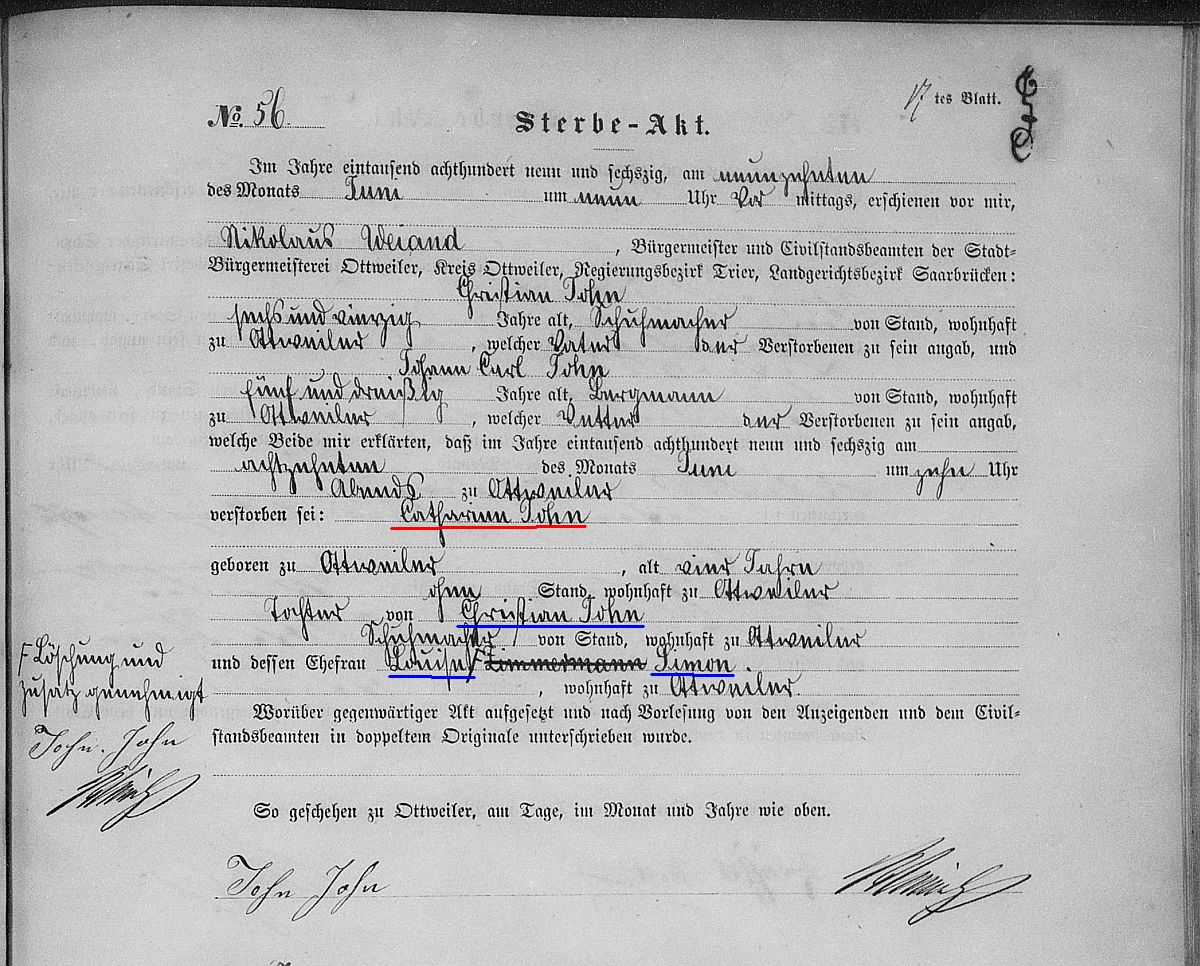 No. 56.
17 tes Blatt.
Sterbe-Akt.
Im Jahre eintausend achthundert neun und sechszig, am neunzehnten
des Monats Juni um neun Uhr Vor mittags, erschienen vor mir,
Nikolaus Weiand, Bürgermeister und Civilstandsbeamten der Stadt-
Bürgermeisterei Ottweiler, Kreis Ottweiler, Regierungsbezirk Trier, Landgerichtsbezirk Saarbrücken:
Christian John
sechs und vierzig Jahre alt, Schuhmacher von Stand, wohnhaft
zu Ottweiler, welcher Vater der Verstorbenen zu sein angab, und
Johann Carl John
fünf und dreißig Jahre alt, Bergmann von Stand, wohnhaft
zu Ottweiler, welcher Vetter der Verstorbenen zu sein angab,
welche Beide mir erklärten, daß im Jahre eintausend achthundert neun und sechszig am
achtzehnten des Monats Juni um zehn Uhr
Abends zu Ottweiler
verstorben sei: Catharina John
geboren zu Ottweiler, alt vier Jahre
ohne Stand, wohnhaft zu Ottweiler
Tochter von Christian John
Schuhmacher von Stand, wohnhaft zu Ottweiler
und dessen Ehefrau Louise Zimmermann Simon.
, wohnhaft zu Ottweiler.
Löschung und
Zusatz genehmigt
John. John
Worüber gegenwärtiger Akt aufgesetzt und nach Vorlesung von den Anzeigenden und dem Civil-
standsbeamten in doppeltem Originale unterschrieben wurde.
So geschehen zu Ottweiler, am Tage, im Monat und Jahre wie oben.
John John